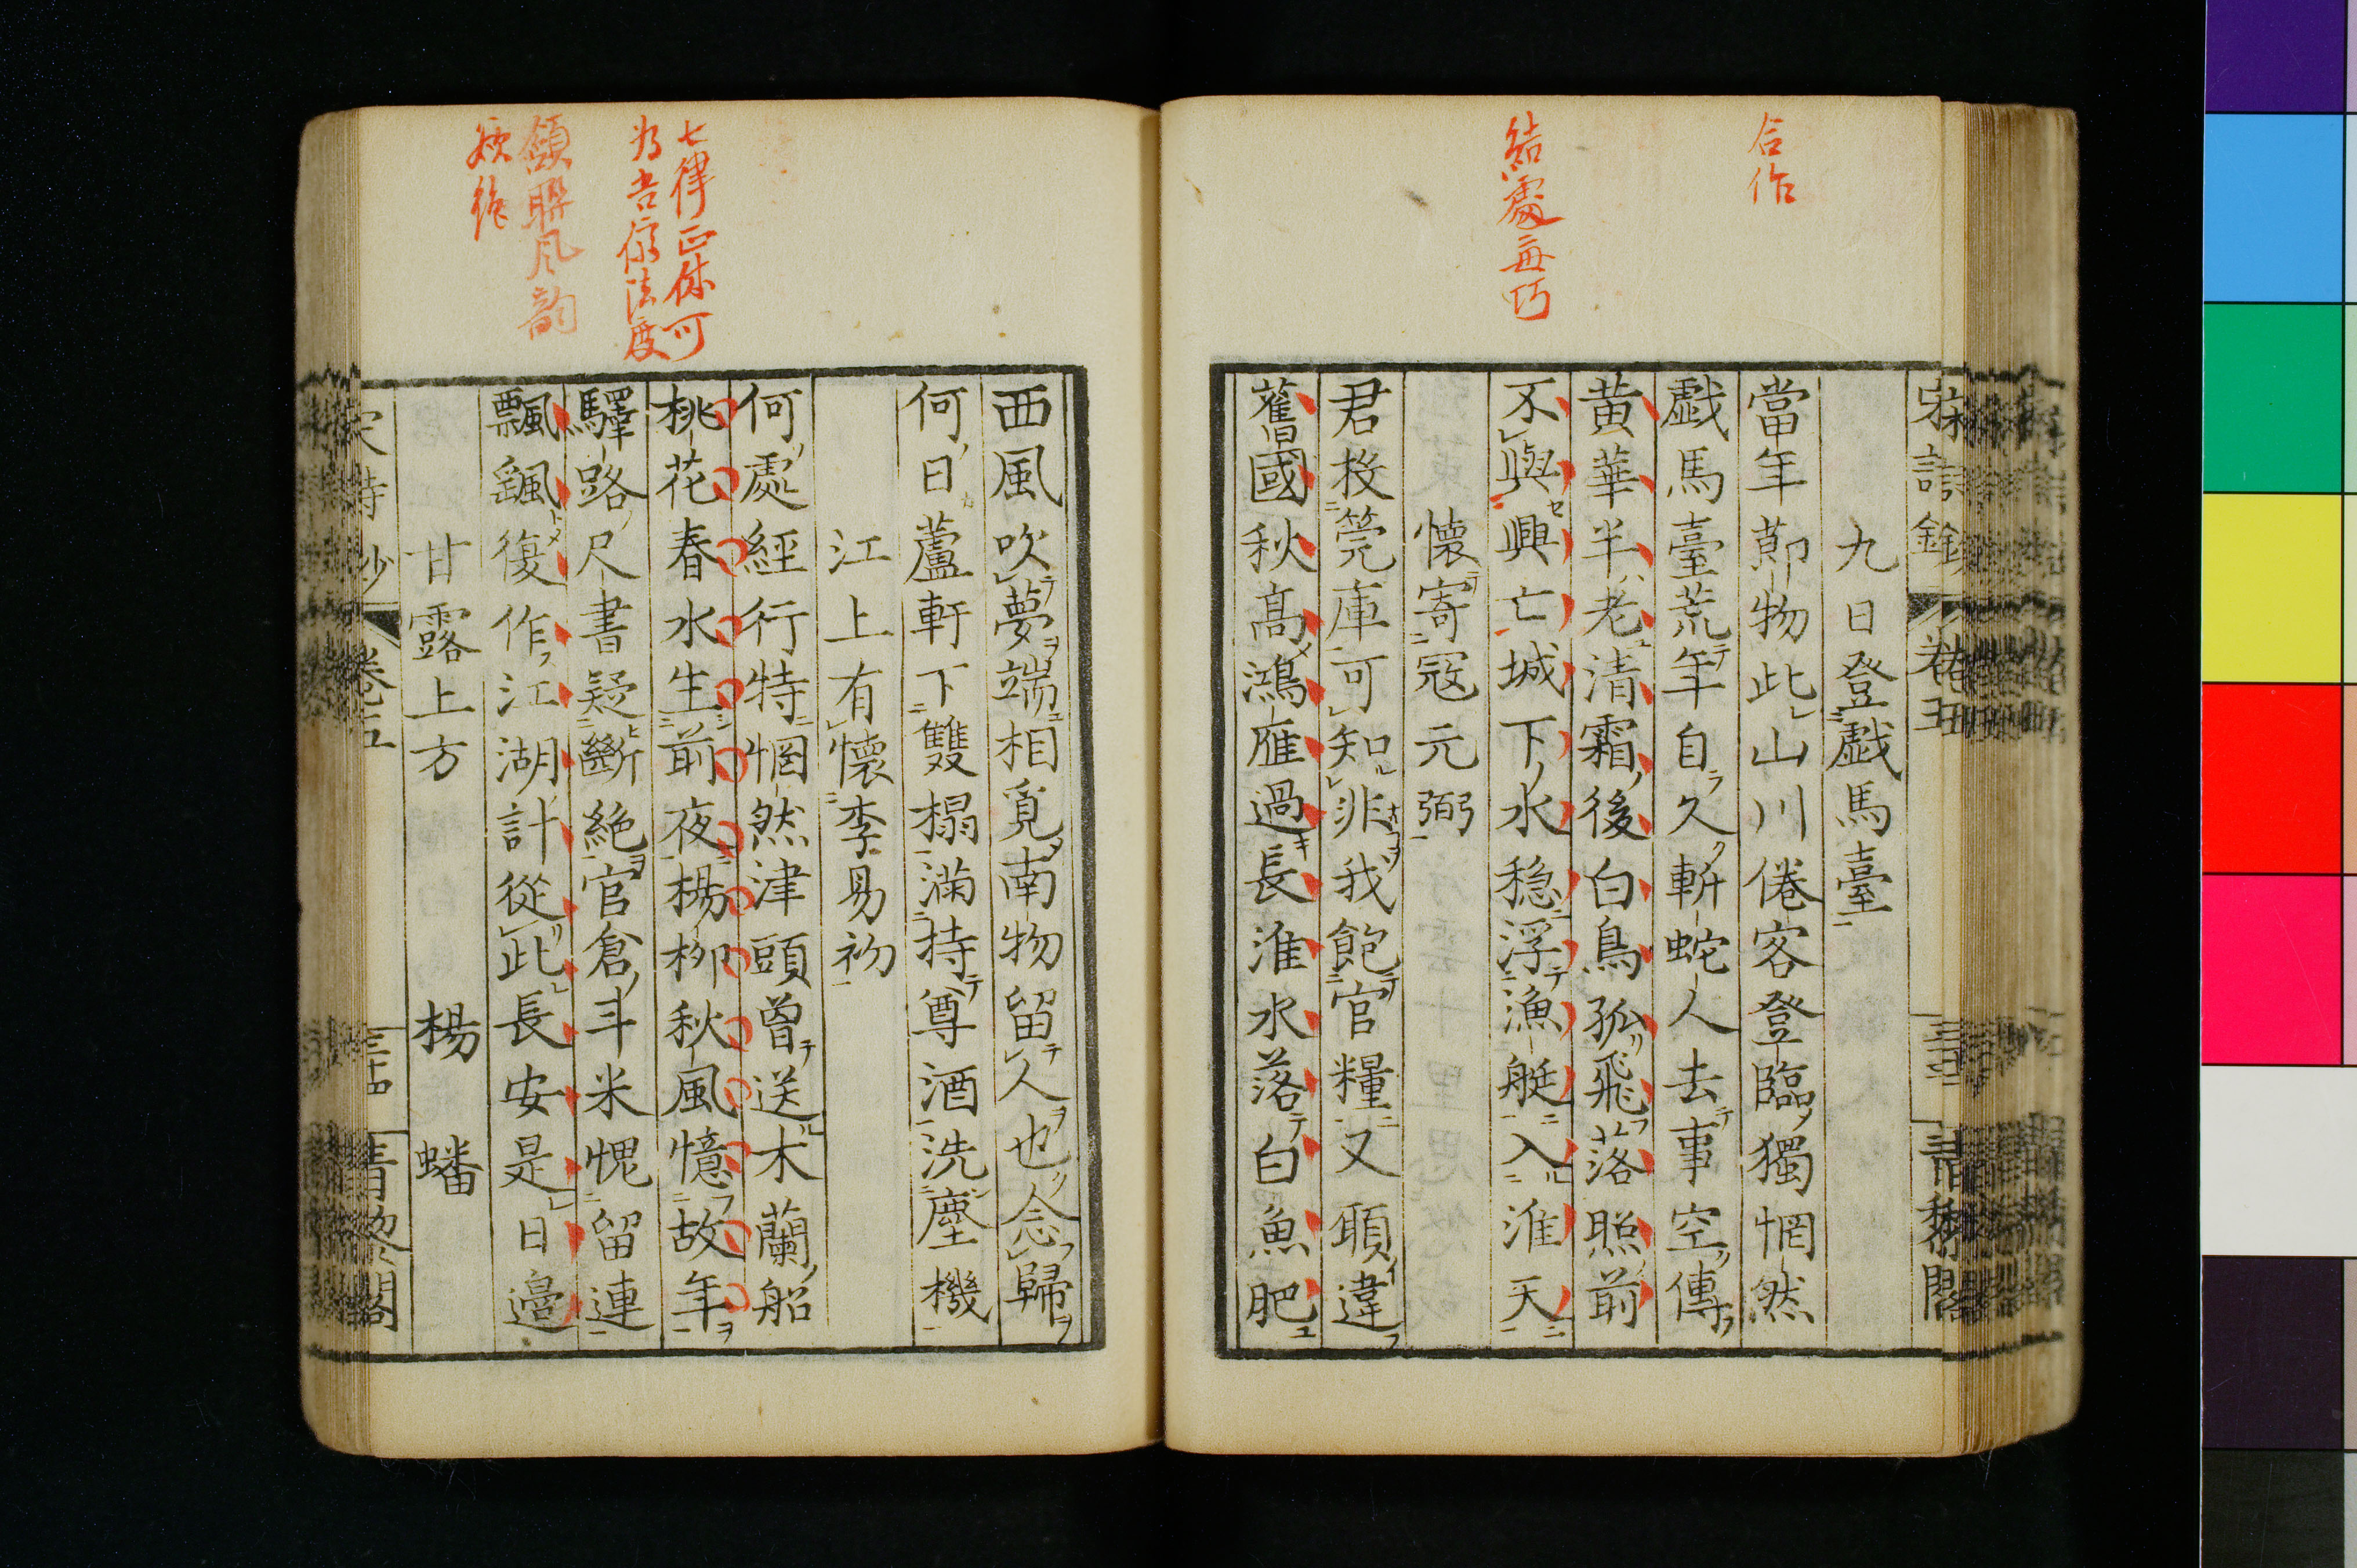 合作
結處無巧
九日登戯馬臺
當年節物此山川倦客登臨獨惘然
戯馬臺荒年自久斬蛇人去事空傳
黄華半老清霜後白鳥孤飛落照前
不與興亡城下水穏浮漁艇入淮天
懐寄冦元弼
君投筦庫可知非我飽官糧又願違
舊國秋高鴻雁過長淮水落白魚肥
七律正体可
為吾儕法度
頷聯風韵
西風吹夢端相覓南物留人也念歸
何日蘆軒下雙榻滿持尊酒洗塵機
江上有懐李易初
何處經行特惘然津頭曽送木蘭船
桃花春水生前夜楊柳秋風憶故年
驛路尺書疑斷絶官倉斗米愧留連
飄颻復作江湖計從此長安是日邉
甘露上方 楊蟠
卷五
青黎閣